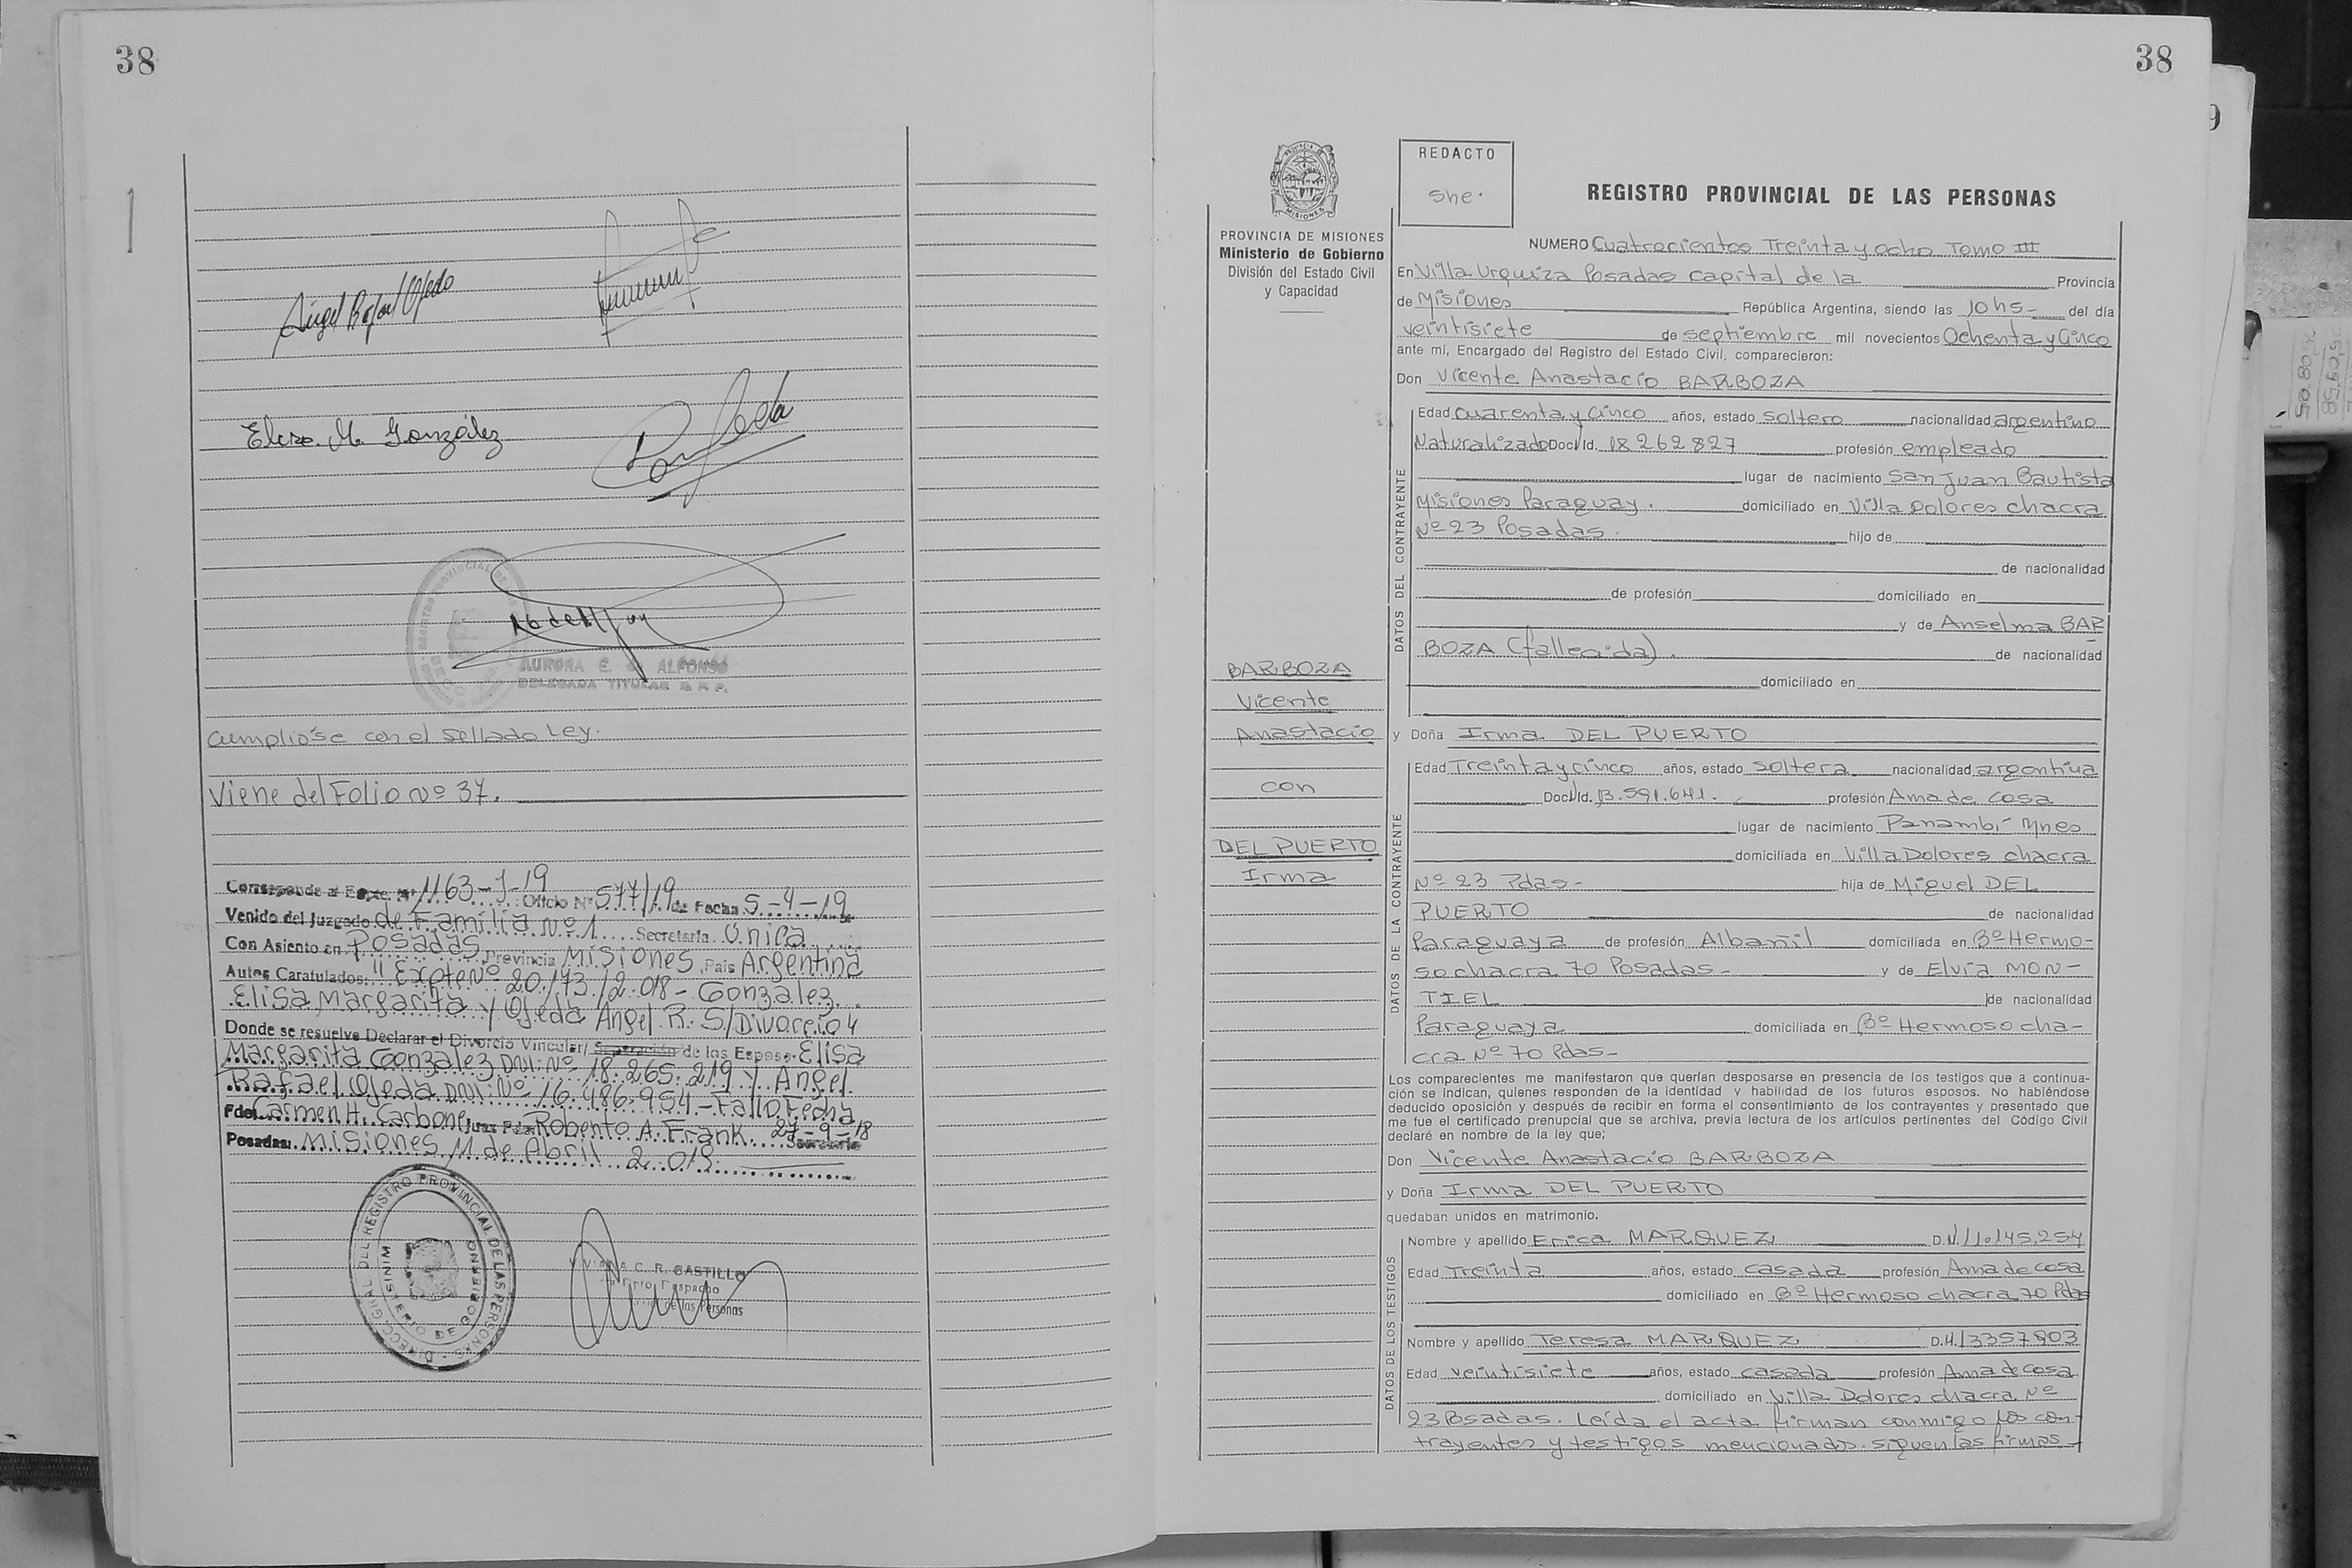 38
Angel Rafael Ojeda
Elisa M. González
AURORA E. de ALFONSO
DELEGADA TITULAR R. P. P.
Cumplióse con el Sellado Ley.
Viene del Folio Nº 37.
Corresponde al Expte. Nº 1163-J-19 Oficio Nº 577/19 de Fecha 5-4-19
Venido del Juzgado de Familia Nº 1 Secretaria Única
Con Asiento en Posadas Provincia Misiones País Argentina
Autos Caratulados: "Expte Nº 20173/2018 - Gonzalez
Elisa Margarita y Ojeda Angel R. S/Divorcio"
Donde se resuelve Declarar el Divorcio Vincular/ Separación de los Esposos Elisa
Margarita Gonzalez DNI: Nº 18.265.219 y Angel
Rafael Ojeda DNI: Nº 16.486.954 - Fallo Fecha
27-9-18
Fdo. Carmen H. Carbone Juez Fdo. Roberto A. Frank Secretario
Posadas: Misiones 11 de Abril 2.019
DIRECC. GRAL DEL REGISTRO PROVINCIAL DE LAS PERSONAS
MINISTERIO DE GOBIERNO
C. R. CASTILLO
Dpto. Despacho
de las Personas
38
9
PROVINCIA DE MISIONES
Ministerio de Gobierno
División del Estado Civil
y Capacidad
REDACTO
She.
REGISTRO PROVINCIAL DE LAS PERSONAS
NUMERO Cuatrocientos Treinta y ocho Tomo III
En Villa Urquiza Posadas Capital de la Provincia
de Misiones República Argentina, siendo las 10 hs- del día
veintisiete de septiembre mil novecientos Ochenta y Cinco
ante mí, Encargado del Registro del Estado Civil, comparecieron:
Don Vicente Anastacio BARBOZA
DATOS DEL CONTRAYENTE
Edad cuarenta y cinco años, estado soltero nacionalidad argentino
Naturalizado Doc. Id. 18262827 profesión empleado
lugar de nacimiento San Juan Bautista
Misiones Paraguay. domiciliado en Villa Dolores chacra
Nº 23 Posadas. hijo de
de nacionalidad
de profesión domiciliado en
y de Anselma BAR
BOZA (fallecida). de nacionalidad
domiciliado en
BARBOZA
Vicente
Anastacio
con
DEL PUERTO
Irma
y Doña Irma DEL PUERTO
DATOS DE LA CONTRAYENTE
Edad Treinta y cinco años, estado soltera nacionalidad argentina
Doc. Id. 13.591.641. profesión Ama de Casa
lugar de nacimiento Panambí Mnes
domiciliada en Villa Dolores chacra
Nº 23 Pdas- hija de Miguel DEL
PUERTO de nacionalidad
Paraguaya de profesión Albañil domiciliada en Bº Hermo-
so chacra 70 Posadas- y de Elvira MON-
TIEL de nacionalidad
Paraguaya domiciliada en Bº Hermoso cha-
cra Nº 70 Pdas-
Los comparecientes me manifestaron que querían desposarse en presencia de los testigos que a continua-
ción se indican, quienes responden de la identidad y habilidad de los futuros esposos. No habiéndose
deducido oposición y después de recibir en forma el consentimiento de los contrayentes y presentado que
me fue el certificado prenupcial que se archiva, previa lectura de los artículos pertinentes del Código Civil
declaré en nombre de la ley que;
Don Vicente Anastacio BARBOZA
y Doña Irma DEL PUERTO
quedaban unidos en matrimonio.
DATOS DE LOS TESTIGOS
Nombre y apellido Erica MARQUEZ D.N.I 10.145.254
Edad Treinta años, estado casada profesión Ama de casa
domiciliado en Bº Hermoso chacra 70 Pdas
Nombre y apellido Teresa MARQUEZ
Edad veintisiete años, estado casada profesión Ama de casa
domiciliado en Villa Dolores chacra Nº
23 Posadas. Leída el acta firman conmigo los con-
trayentes y testigos mencionados. siguen las firmas-